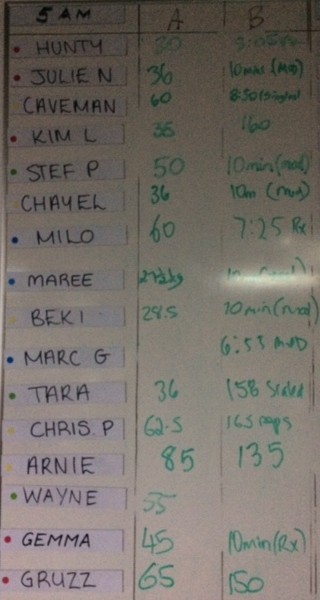 5 AM A B
HUNTY 30
JULIE N 36 10mins (mod)
CAVEMAN 60 8:50
KIM L 35 160
STEF P 50 10min (mod)
CHAYEL 36 10m (mod)
MILO 60 7:25 Rx
MAREE
BEKI 28.5 10min (mod)
MARC G 6:53 MOD
TARA 36 158 Scaled
CHRIS.P 62.5 165 reps
ARNIE 85 135
WAYNE 55
GEMMA 45 10min (Rx)
GRUZZ 65 150